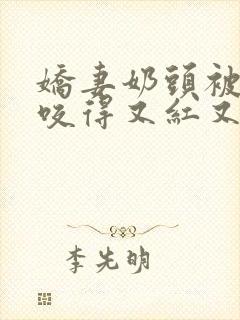 嬌妻奶頭被
咬得又紅又
李先明